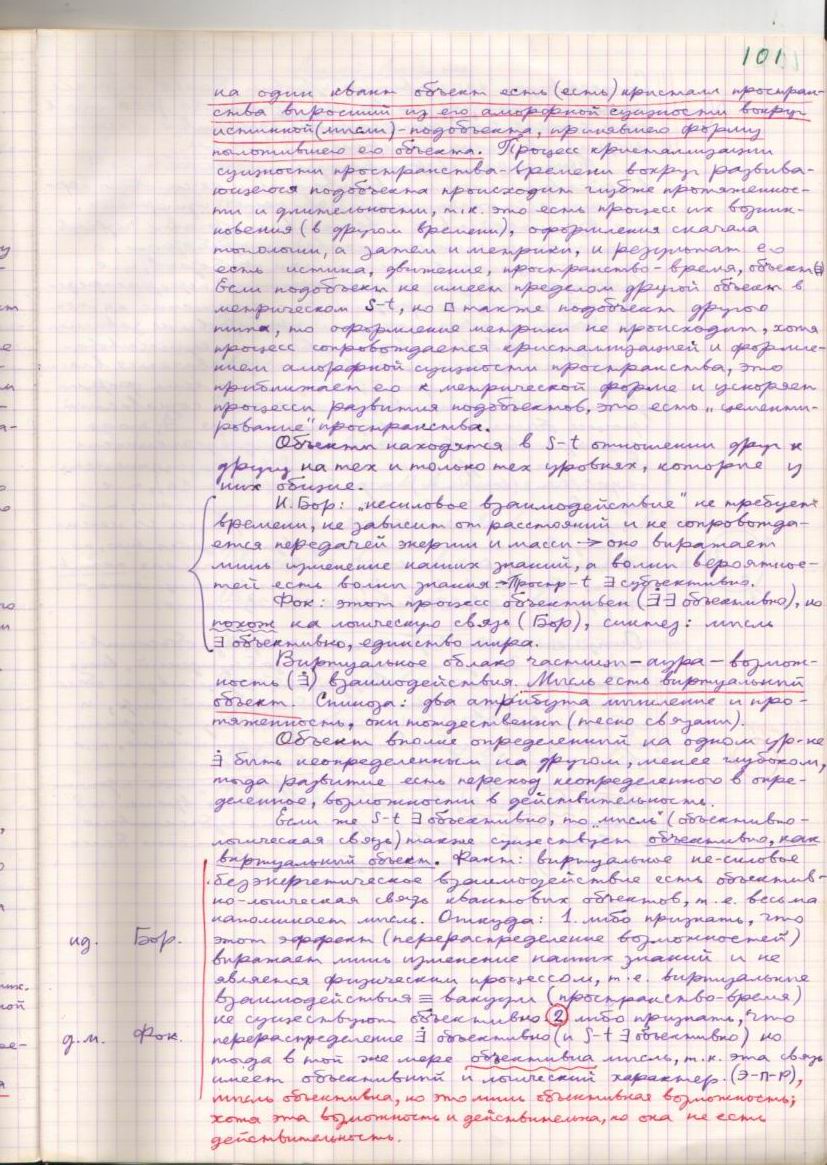 101
на один квант объект есть (есть) кристалл простран-
ства выросший из его аморфной сущности вокруг
истинной (мысли) - подобъекта, принявшего форму
положившего его объекта. Процесс кристаллизации
сущности пространства-времени вокруг развива-
ющегося подобъекта происходит глубже протяженнос-
ти и длительности, т.к. это есть процесс их возник-
новения (в другом времени), оформления сначала
топологии, а затем и метрики, и результат его
есть истина, движение, пространство-время, объект
Если подобъект не имеет пределом другой объект в
метрическом S-t, но □ также подобъект другого
типа, то оформление метрики не происходит, хотя
процесс сопровождается кристаллизацией и формле-
нием аморфной сущности пространства, это
приближает его к метрической форме и ускоряет
процессы развития подобъектов, это есть „цементи-
рование" пространства.
Объекты находятся в S-t отношении друг к
другу на тех и только тех уровнях, которые у
них общие.
Н. Бор: „несиловое взаимодействие" не требует
времени, не зависит от расстояний и не сопровожда-
ется передачей энергии и массы → оно выражает
лишь изменение наших знаний, а волны вероятнос-
тей есть волны знания → Простр-t ∃ субъективно.
Фок: этот процесс объективен (∃̇ ∃ объективно), но
похож на логическую связь (Бор), синтез: мысль
∃ объективно, единство мира.
Виртуальное облако частицы - аура - возмож-
ность (∃̇) взаимодействия. Мысль есть виртуальный
объект. Спиноза: два атрибута мышление и про-
тяженность, они тождественны (тесно связаны).
Объект вполне определенный на одном ур-не
∃̇ быть неопределенным на другом, менее глубоком,
тогда развитие есть переход неопределенного в опре-
деленное, возможности в действительность.
Если же S-t ∃ объективно, то „мысль" (объективно-
логическая связь) также существует объективно, как
виртуальный объект. Факт: виртуальное не-силовое
безэнергетическое взаимодействие есть объектив-
но-логическая связь квантовых объектов, т.е. весьма
напоминает мысль. Откуда: 1. либо признать, что
ид. Бор. этот эффект (перераспределение возможностей)
выражает лишь изменение наших знаний и не
является физическим процессом, т.е. виртуальные
взаимодействия ≡ вакуум (пространство-время)
не существуют объективно 2 либо признать, что
д.м. Фок. перераспределение ∃̇ объективно (и S-t ∃ объективно) но
тогда в той же мере объективна мысль, т.к. эта связь
имеет объективный и логический характер. (Э-П-Р),
мысль объективна, но это лишь объективная возможность;
хотя эта возможность и действительна, но она не есть
действительность.